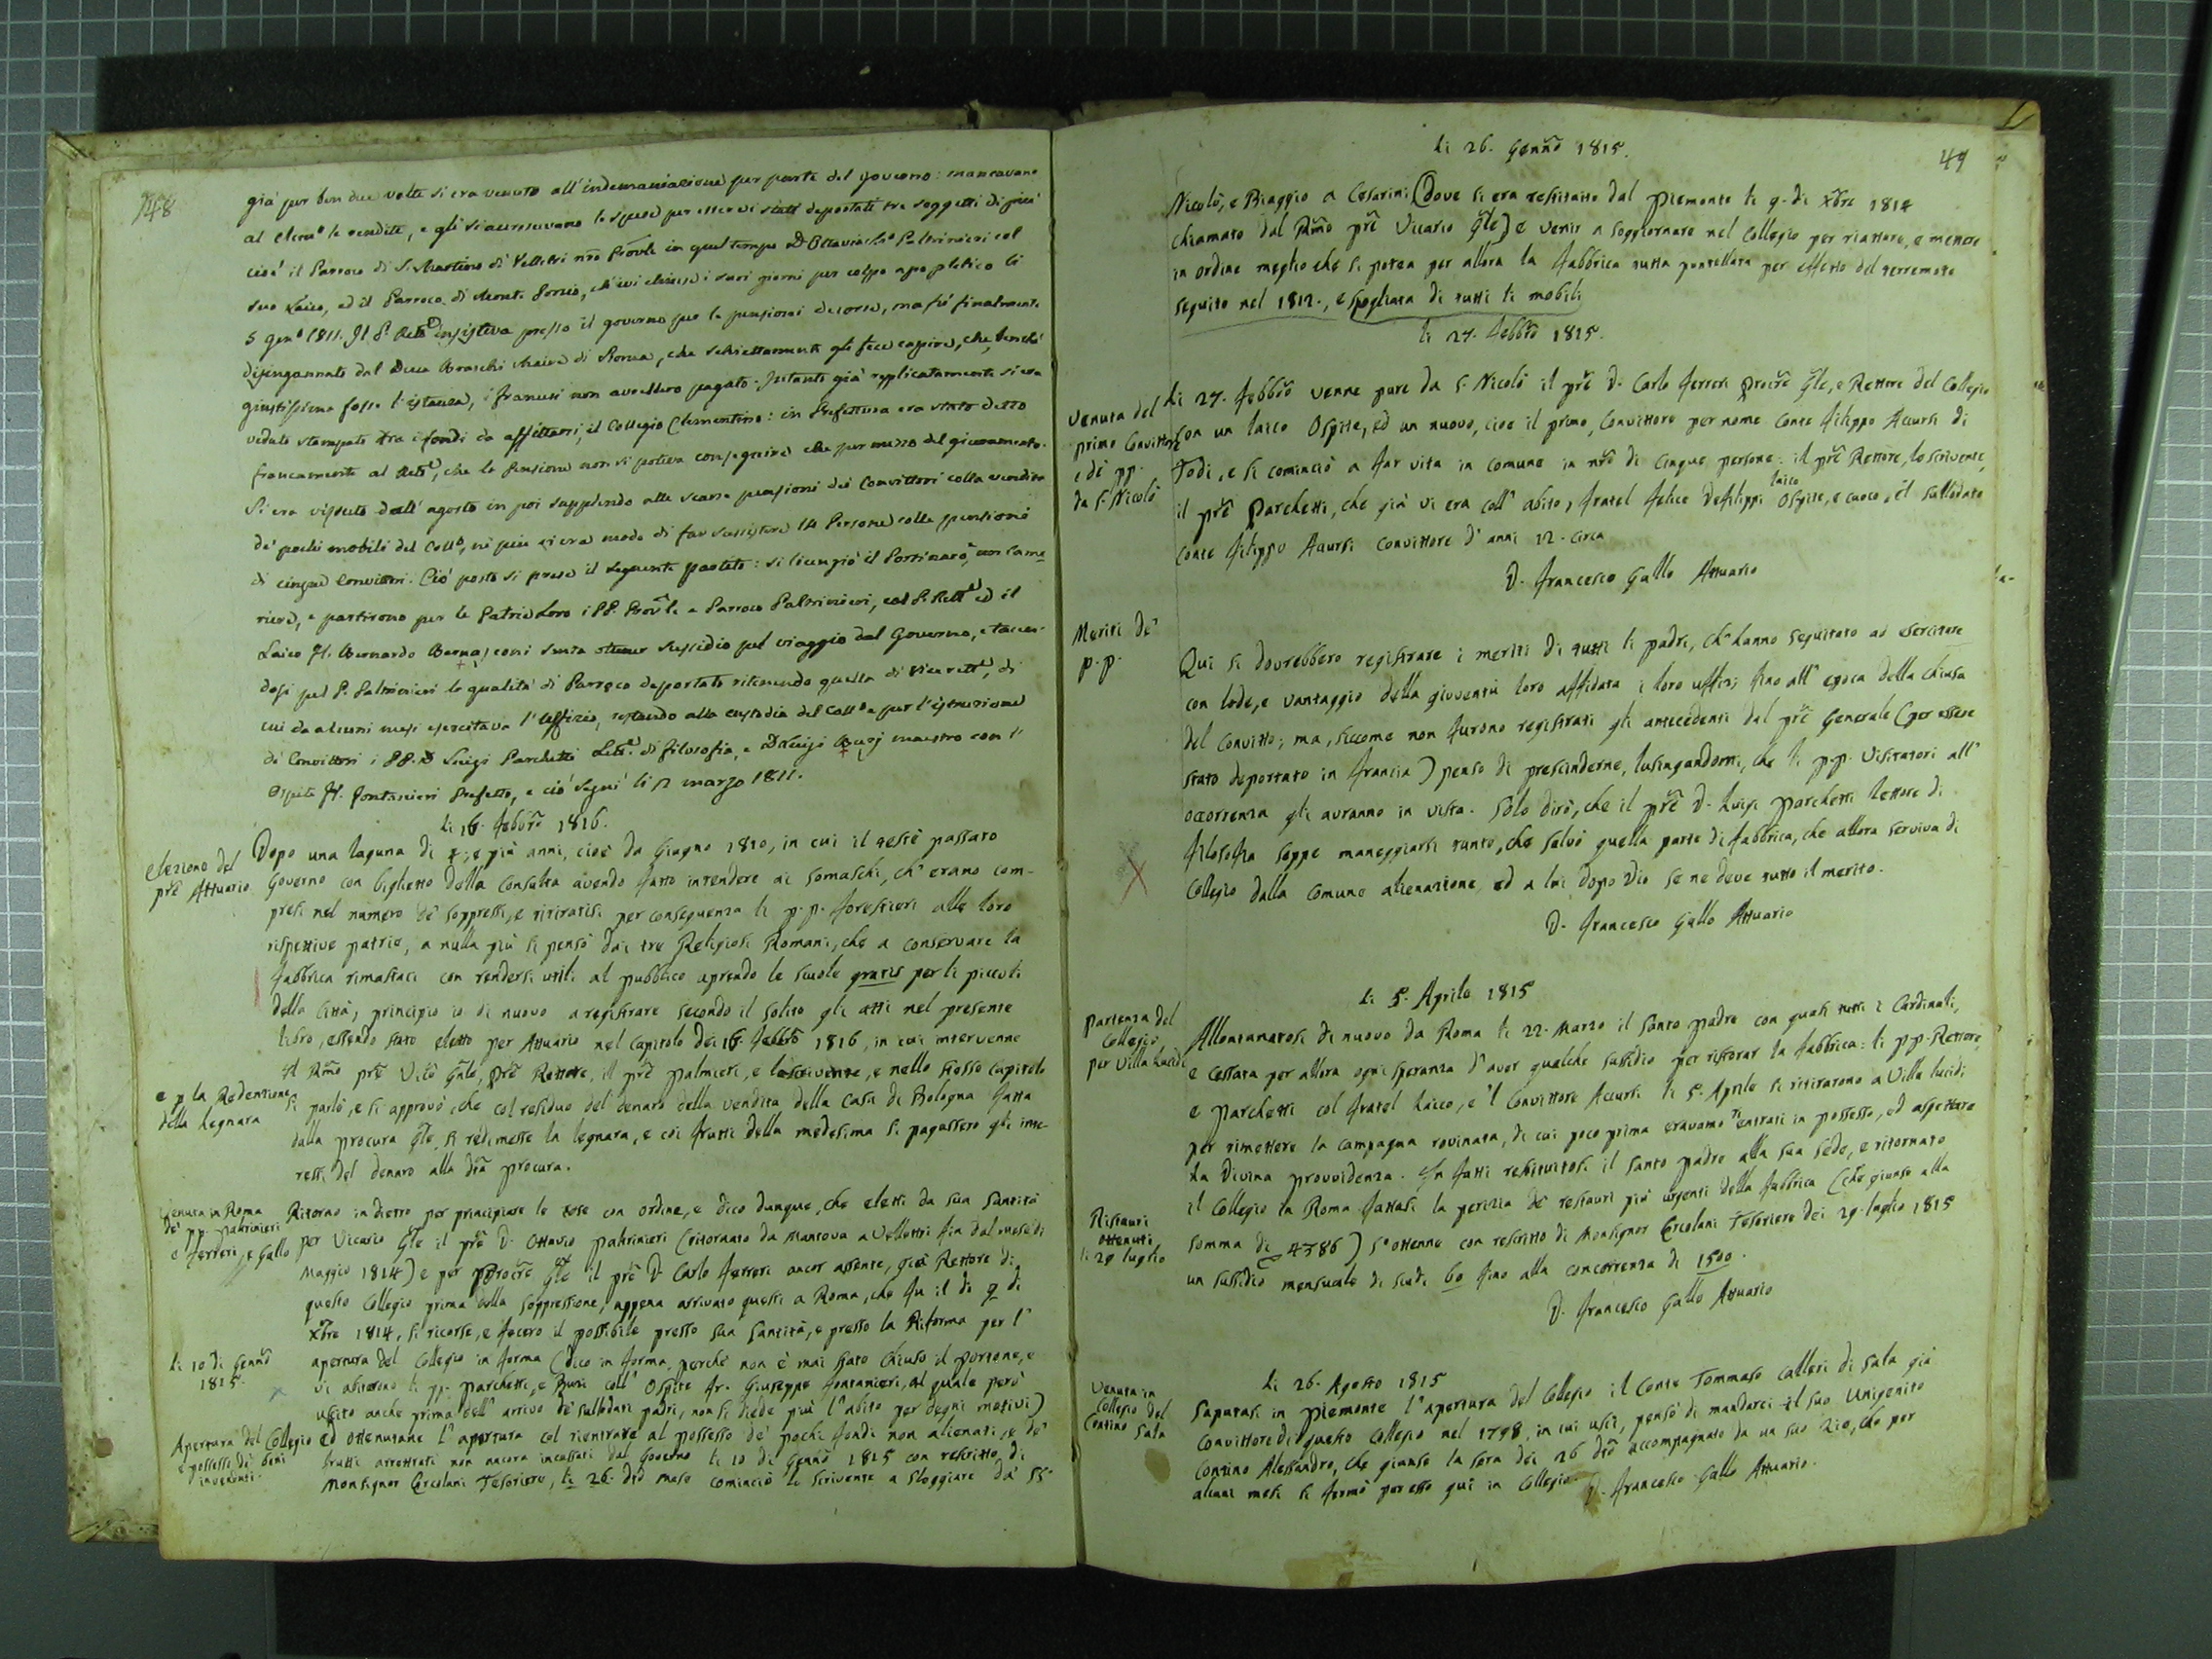 148
già per ben due volte si era venuto all'indemaniazione per parte del governo: mancavano
al Clem.o le rendite, e gli si accrescevano le spese per esservi stati deportati tre soggetti di più
cioè il Parroco di S. Martino di Velletri nro Prõvle in quel tempo D. Ottavio Paltrinieri col
suo Laico, ed il Parroco di Monte Porzio, ch'ivi chiuse i suoi giorni per colpo apopletico li
5 gen.o 1811. Il P. Rett.e insisteva presso il governo per le pensioni decorse, ma fu finalmente
disingannato dal Duca Braschi Maire di Roma, che schiettamente gli fece capire, che, benchè
giustissima fosse l'istanza, i francesi non avrebbero pagato. Intanto già replicatamente si era
veduto stampato tra i fondi da affittarsi, il Collegio Clementino: in Prefettura era stato detto
francamente al Rett.e, che le Pensione non si poteva conseguire che per mezzo del giuramento.
Si era vissuto dall'agosto in poi supplendo alle scarse pensioni dei Convittori colla vendita
de' pochi mobili del Coll.o, nè più vi era modo di far sussistere 14 Persone colle pensioni
di cinque Convittori. Ciò posto si prese il seguente partito: si licenziò il Portinaro, un came=
riere, e partirono per le Patrie Loro i PP. Prov̂le e Parroco Paltrinieri, col P. Rett.e ed il
Laico Fl. Bernardo Bernasconi senza ottener sussidio pel viaggio dal Governo, e tacen-
dosi pel P. Paltrinieri la qualità di Parroco deportato ritenendo quella di Vicerett.e, di
cui da alcuni mesi esercitava l'uffizio, restando alla custodia del Coll.o e per l'istruzione
di Convittori i PP. D. Luigi Parchetti Lett.e di filosofia, e D. Luigi Buzj maestro con l'
Ospite Fl. Fontanieri Prefetto, e ciò seguì li 12 marzo 1811.
li 16. Febbro 1816.
elezione del
pre Attuario
Dopo una laguna di 5, e più anni, cioè da Giugno 1810, in cui il testè passato
Governo con biglietto della Consulta avendo fatto intendere ai Somaschi, ch'erano com-
presi nel numero de' soppressi, e ritiratisi per conseguenza li p.p. forestieri alle loro
rispettive patrie, a nulla più si pensò dai tre Religiosi Romani, che a conservare la
fabbrica rimastaci con rendersi utili al pubblico aprendo le scuole gratis per li piccoli
della Città, principio io di nuovo a registrare secondo il solito gli atti nel presente
libro, essendo stato eletto per Attuario nel Capitolo dei 16. Febbro 1816, in cui intervenne
il Rmo pre Vico Gnle, pre Rettore, il pre Palmieri, e lo scrivente, e nello stesso capitolo
e p la Redenzione
della Legnara
si parlò, e si approvò, che col residuo del denaro della vendita della Casa di Bologna fatta
dalla procura Gle, si redimesse la legnara, e coi frutti della medesima si pagassero gli inte-
ressi del denaro alla dta procura.
Venuta in Roma
de' pp. Paltrinieri
e Ferreri, e Gallo
Ritorno indietro per principiare le cose con ordine, e dico dunque, che eletti da sua Santità
per Vicario Gle il pre D. Ottavio Paltrinieri (ritornato da Mantova a Velletri fin dal mese di
Maggio 1814) e per Procre Gle il pre D. Carlo Ferreri ancor assente, già Rettore di
questo Collegio prima della soppressione, appena arrivato questi a Roma, che fu il dì 9 di
Xbre 1814, si ricorse, e fecero il possibile presso sua Santità, e presso la Riforma per l'
li 10 di Genno
1815.
apertura del Collegio in forma (dico in forma, perchè non è mai stato chiuso il portone, e
vi abitarono li pp. Parchetti, e Buzi coll'Ospite Fr. Giuseppe Fontanieri, al quale però
uscito anche prima dell'arrivo de' sullodati padri, non si diede più l'abito per degni motivi)
Apertura del Collegio
e possesso di beni
invenduti.
ed ottenutane l'apertura col rientrare al possesso de' pochi fondi non alienati, e de'
frutti arretrati non ancora incassati dal Governo li 10 di Genno 1815 con rescritto di
Monsignor Ercolani Tesoriere, li 26. dto mese cominciò lo scrivente a sloggiare da' SS.
49
li 26. Genno 1815.
Nicolò, e Biaggio a Cesarini (dove si era restituito dal Piemonte li 9. di Xbre 1814
chiamato dal Rmo pre Vicario Gle) e venir a soggiornare nel Collegio per riattare, e mettere
in ordine meglio che si potea per allora la fabbrica tutta puntellata per effetto del terremoto
seguito nel 1812., e spogliata di tutti li mobili
li 27. Febbro 1815.
Venuta del
primo Convittore
e di pp.
da S. Nicolò
Li 27. Febbro venne pure da S. Nicolò il pre D. Carlo Ferreri Procre Gle, e Rettore del Collegio
con un laico Ospite, ed un nuovo, cioè il primo, Convittore per nome Conte Filippo Accursi di
Todi, e si cominciò a far vita in comune in nro di cinque persone: il pre Rettore, lo scrivente,
il pre Parchetti, che già vi era coll'abito, fratel Felice Defilippi laico Ospite, e cuoco, il sullodato
Conte Filippo Accursi Convittore d'anni 12. circa
D. Francesco Gallo Attuario
Meriti de'
p.p.
Qui si dovrebbero registrare i meriti di tutti li padri, ch'hanno seguitato ad esercitare
con lode, e vantaggio della gioventù loro affidata i loro uffizj fino all'epoca della chiusa
del Convitto; ma, siccome non furono registrati gli antecedenti dal pre Generale (per essere
stato deportato in Francia) penso di prescinderne, lusingandomi, che li p.p. Visitatori all'
occorrenza gli avranno in vista. Solo dirò, che il pre D. Luigi Parchetti Lettore di
filosofia seppe maneggiarsi tanto, che salvò quella parte di fabbrica, che allora serviva di
Collegio dalla comune alienazione, ed a lui dopo Dio se ne deve tutto il merito.
D. Francesco Gallo Attuario
li 5. Aprile 1815
Partenza del
Collegio
per Villa Lucidi
Allontanatosi di nuovo da Roma li 22. Marzo il Santo padre con quasi tutti i Cardinali,
e cessata per allora ogni speranza d'aver qualche sussidio per ristorar la fabbrica: li pp. Rettore
e Parchetti col fratel Laico, e 'l Convittore Accursi li 5. Aprile si ritirarono a Villa Lucidi
per rimettere la campagna rovinata, di cui poco prima eravamo rientrati in possesso, ed aspettare
la Divina provvidenza. In fatti restituitosi il Santo padre alla sua Sede, e ritornato
il Collegio in Roma fattasi la perizia de' restauri più urgenti della fabbrica (che giunse alla
Ristauri
ottenuti
li 29 luglio
somma di 4786) s'ottenne con rescritto di Monsignor Ercolani Tesoriere dei 29. luglio 1815
un sussidio mensuale di scudi 60 fino alla concorrenza di 1500.
D. Francesco Gallo Attuario
li 26. Agosto 1815
Venuta in
Collegio del
Contino Sala
Saputasi in Piemonte l'apertura del Collegio il Conte Tommaso Calleri di Sala già
Convittore di questo Collegio nel 1798, in cui uscì, pensò di mandarci il suo Unigenito
Contino Alessandro, che giunse la sera dei 26 dto accompagnato da un suo Zio, che per
alcuni mesi si fermò per esso qui in Collegio. D. Francesco Gallo Attuario.